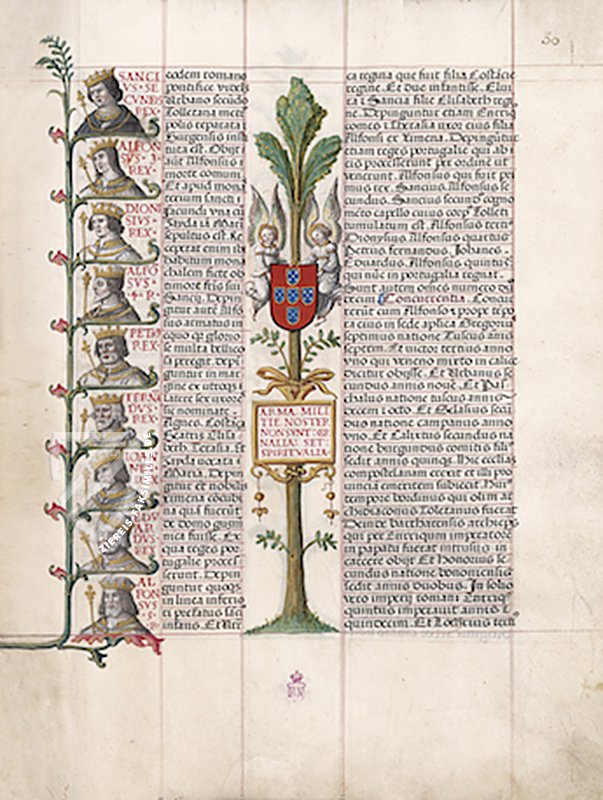 30
SANCI
VS · SE
CVNDS
REX ·
ALFON
SVS · 3 ·
REX ·
DIONI
SIVS ·
REX ·
ALFO
SVS ·
· 4 · R ·
PETRO
REX ·
FERNA
DVS ·
REX ·
REX
AL
FON
SVS
· 5 · R ·
eodem romano
pontifice videlz
Urbano secūdo
Tolletana metro
polis reparata
Burgensis insti
tuta est. Obijt
aūt Alfonsus
morte comuni
Et apud mona
terium sancti
facundi vna cū
sepultus est. Re
habitum mona
chalem ficte ob
timore fris sui
Sancij. Depin
gitur aūt Alfō
sus armatus in
equo qz glorio
se multa bellico
si peregit. depi
guntur in mar
gine ex utroqz
latere sex uxores
sic nominate
Maria. Depin
gitur et nobilis
ximena
na qua fuerūt
ex domo gusm
nica fuisse. Ex
qua reges por
tugalie proces
serunt. Depin
guntur quoqz
in linea inferio
ri prefatus sāci
infans. Et Re
ARMA · MILI
TIE · NOSTER
NON SVNT · CAR
NALIA · SET ·
SPIRITVALIA
ca regina que fuit filia Costācie
regine. Et due infantisse. Elui
ra i Sancia filie Elisabeth regi
ne. Depinguntur etiam Enri
comes i Therasia uxor eius filia
Alfonsi et Ximena. Depingūtur
etiam reges portugalie qui ab i
pis processerunt per ordine ut
venerunt. Alfonsus qui fuit pri
mus rex. Sancius. Alfonsus se
cundus. Sancius secundus cogno
meto capello cuius corpus Tolleti
tumulatum est. Alfonsus tertius
Dionysius. Alfonsus quartus
Petrus fernandus. Johanes.
Eduardus. Alfonsus quintus
qui nūc in portugalia regnat
Sunt autem omnes numero du
decim. Concurrentia. Concur
rerūt cum Alfonso i prope tepo
ra eius in sede aplica Gregorius
septimus natione Tuscus annis
septem. Et victor tertius anno
vno qui veneno mixto in calice
dicitur obijsse. Et Urbanus se
cundus annis nouē. Et Pas
chalus natione tuscus annis
decem i octo. Et Gelasius secun
dus natione campanus anno
vno. Et Calixtus secundus na
tione burgundus comitis filius
sedit annis quinqz. Hic ecclesiam
compostelanam erexit et illi pro
uincia emeritem subiecit. Hui
tempore bordinus qui olim ar
chidiaconus Toletanus fuerat
Deinde bartharensis archieps
qui per Enricum imperatore
in papatu fuerat intrusus in
carcere obijt. Et Honorius se
cundus natione bononiensis
sedit annis duobus. In solio
vero imperij romani Enriqz
quintus imperauit annis i
quindecim. Et Lotherius terti
ZIEREIS FAKSIMILES
BN